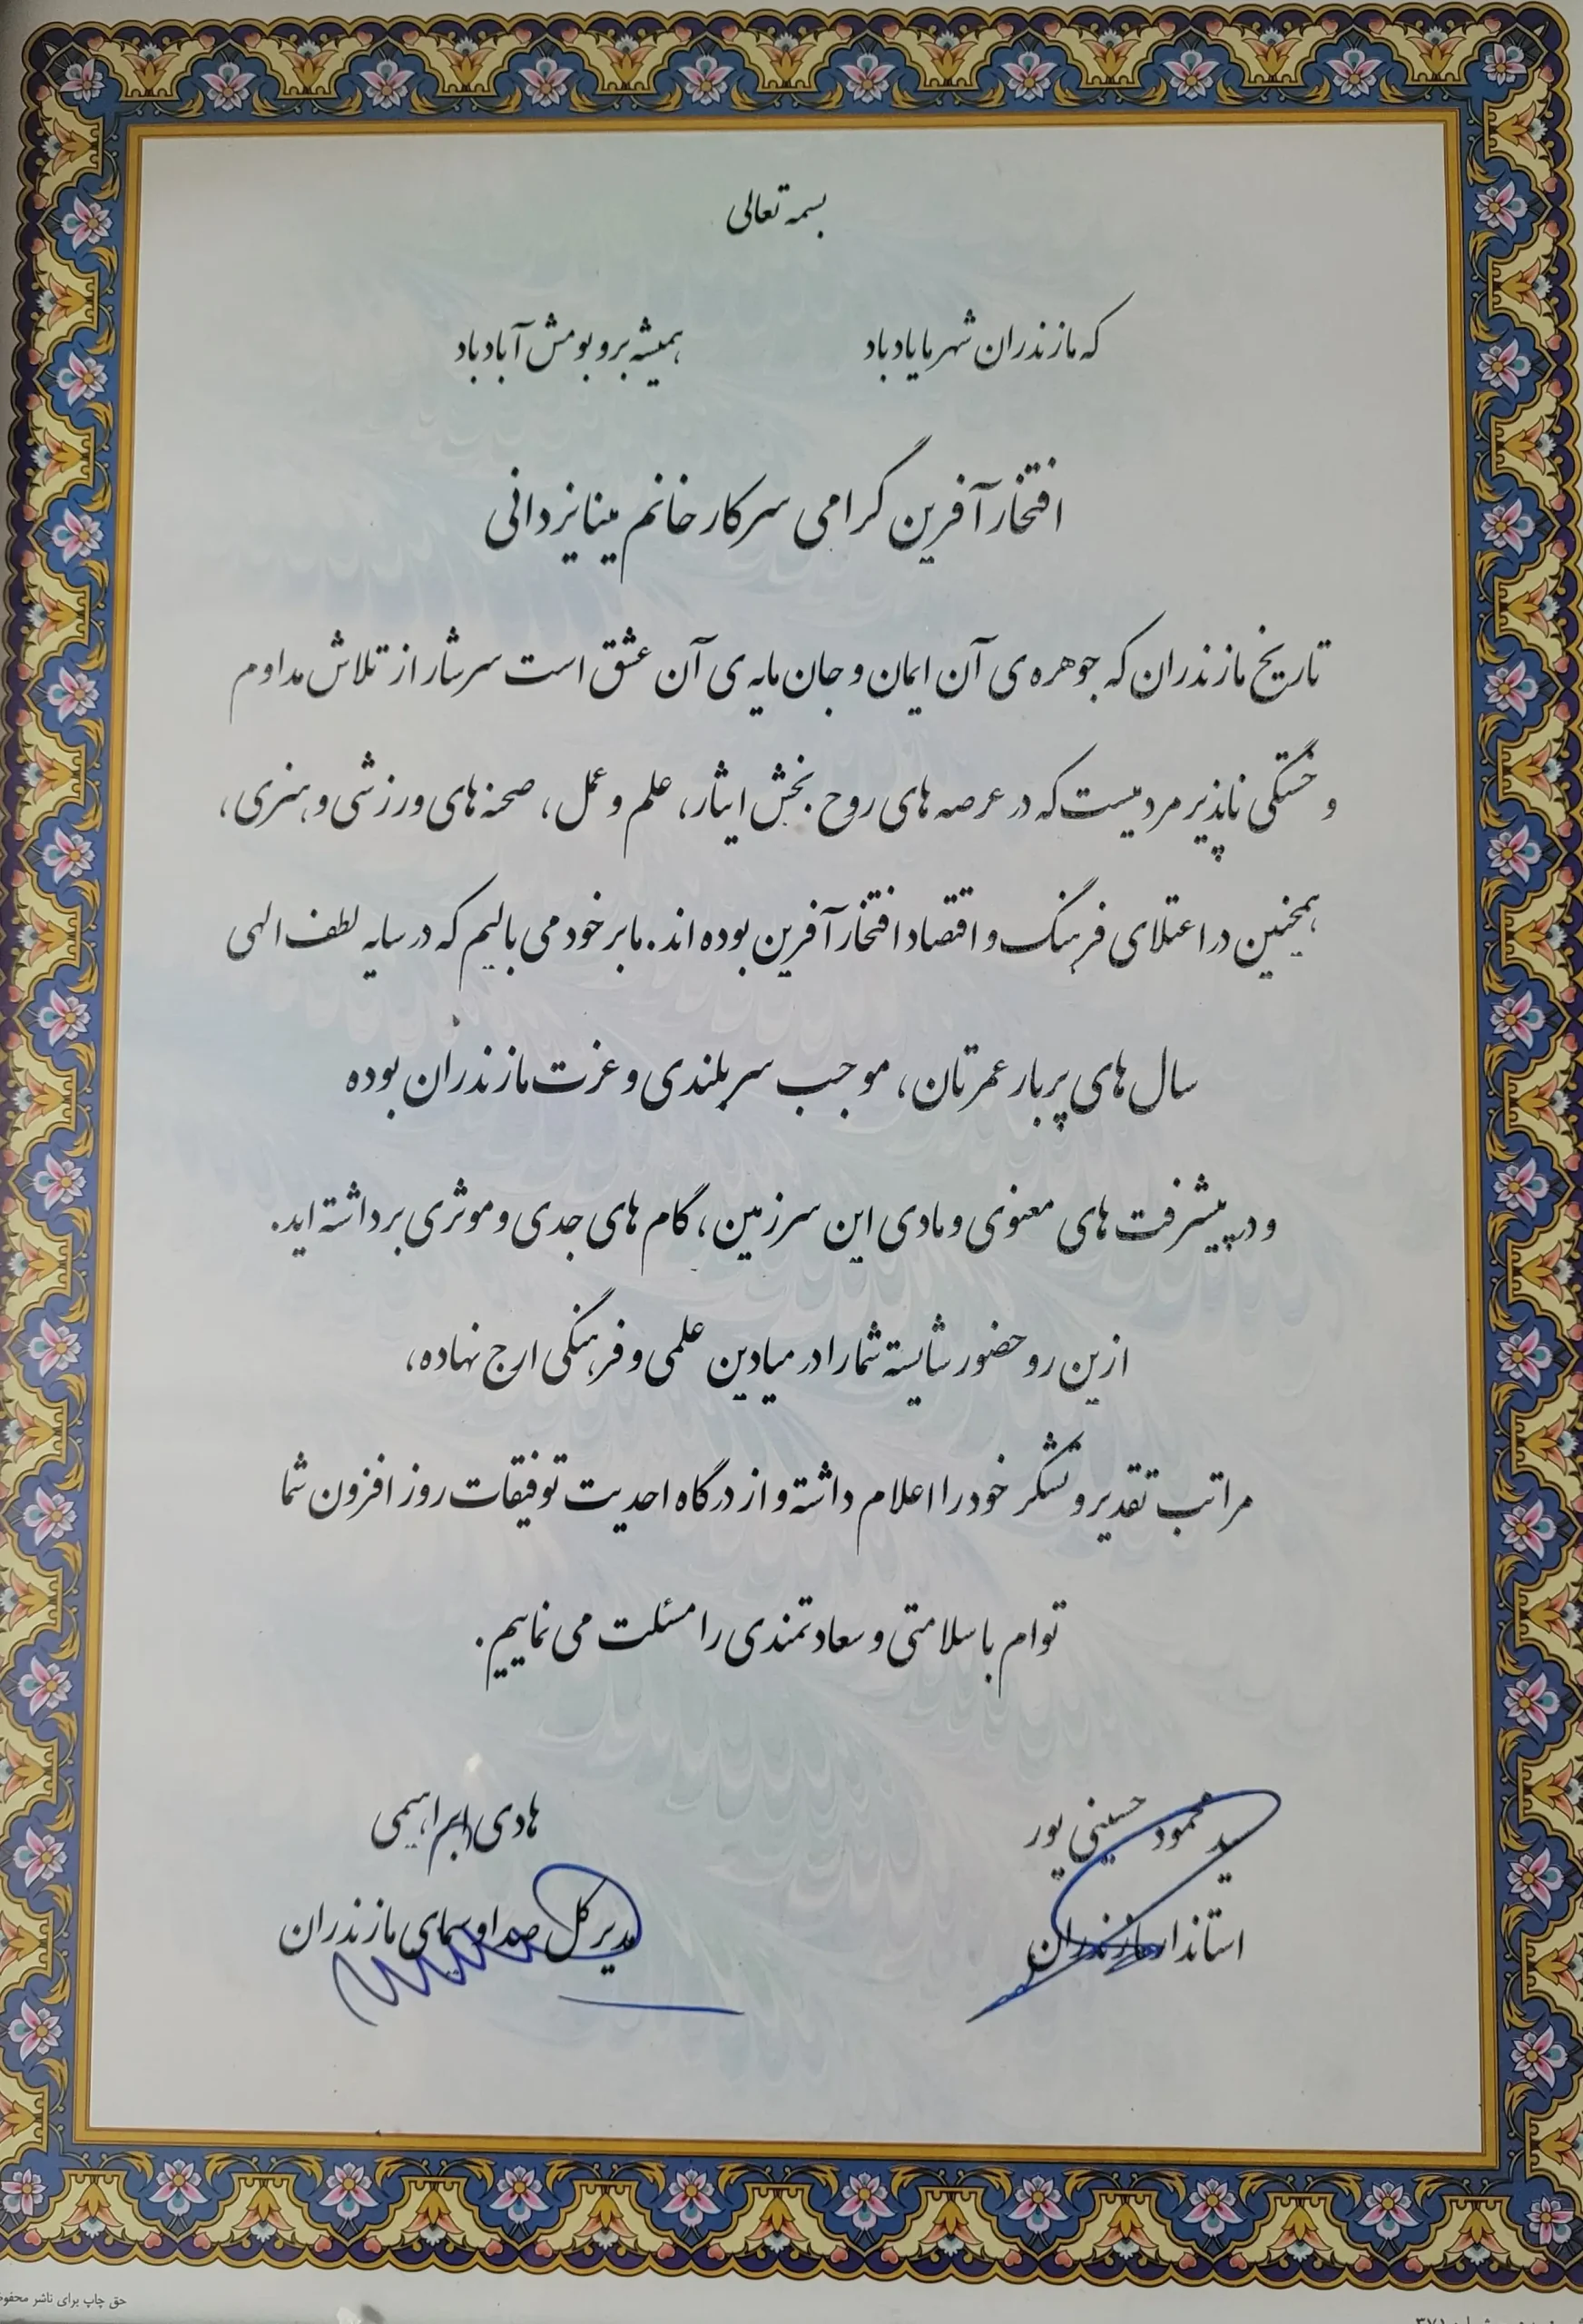 بسمه تعالی
که مازندران شهر ما یاد باد همیشه بر و بومش آباد باد
افتخار آفرین گرامی سرکار خانم مینا یزدانی
تاریخ مازندران که جوهره ی آن ایمان و جان مایه ی آن عشق است سرشار از تلاش مداوم
و خستگی ناپذیر مردمیست که در عرصه های روح بخش ایثار، علم و عمل، صحنه های ورزشی و هنری،
همچنین در اعتلای فرهنگ و اقتصاد افتخار آفرین بوده اند. ما بر خود می بالیم که در سایه لطف الهی
سال های پربار عمرتان، موجب سربلندی و عزت مازندران بوده
و در پیشرفت های معنوی و مادی این سرزمین، گام های جدی و موثری برداشته اید.
ازین رو حضور شایسته شما را در میادین علمی و فرهنگی ارج نهاده،
مراتب تقدیر و تشکر خود را اعلام داشته و از درگاه احدیت توفیقات روز افزون شما
توام با سلامتی و سعادتمندی را مسئلت می نماییم.
سید محمود حسینی پور
استاندار مازندران
هادی ابراهیمی
مدیر کل صدا و سیمای مازندران
حق چاپ برای ناشر محفوظ